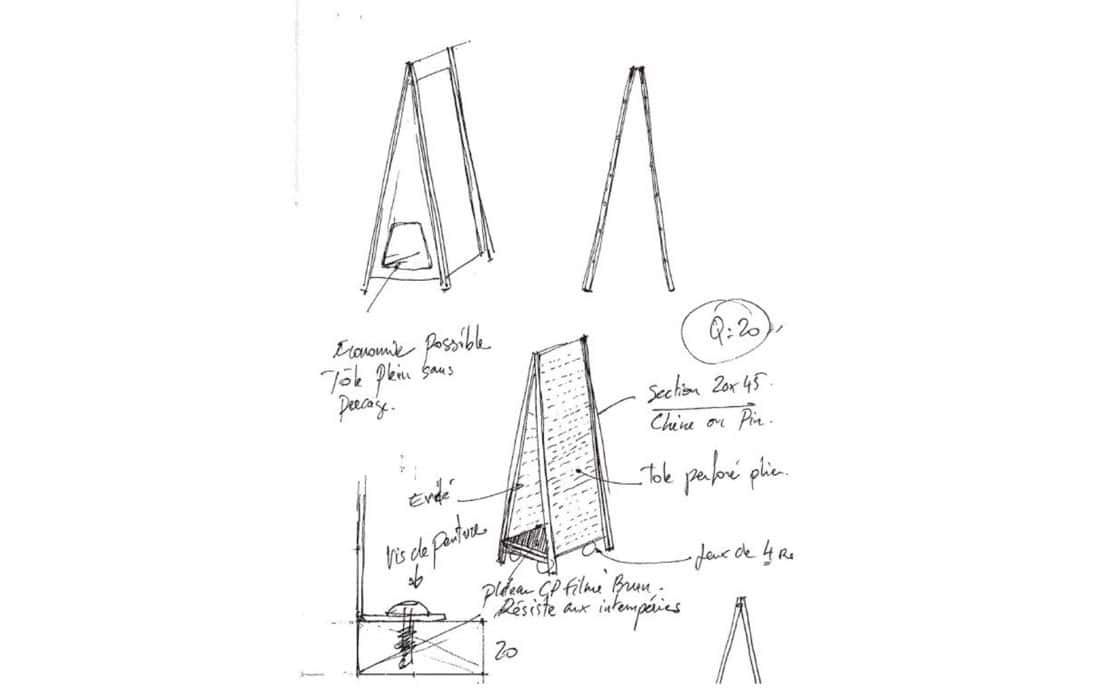 Economie possible
Tôle plein sans
percage.
Q: 20
Section 20x45.
Chêne ou Pin.
Tole perforé plier.
Evidé
Vis de penture
Jeux de 4 Ro
plateau CP filmé Brun.
Résiste aux intempéries
20